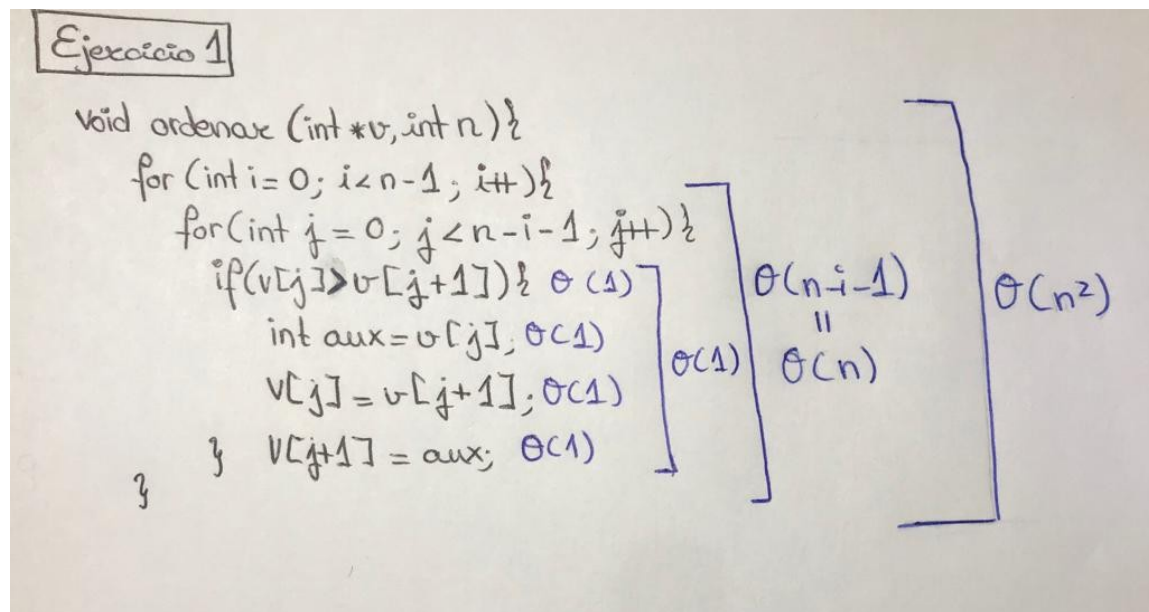 Ejercicio 1
void ordenar (int *v, int n){
for (int i = 0; i < n-1; i++){
for (int j = 0; j < n-i-1; j++){
if(v[j]>v[j+1]){ θ(1)
int aux = v[j]; θ(1)
v[j] = v[j+1]; θ(1)
} v[j+1] = aux; θ(1)
}
θ(1)
θ(n-i-1)
=
θ(n)
θ(n²)